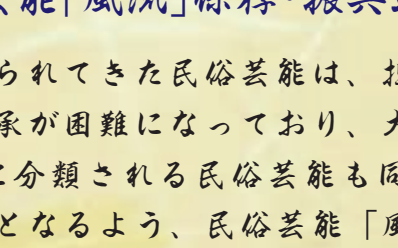 能「風流」保存・振興
られてきた民俗芸能は、担
承が困難になっており、大
に分類される民俗芸能も同
となるよう、民俗芸能「風